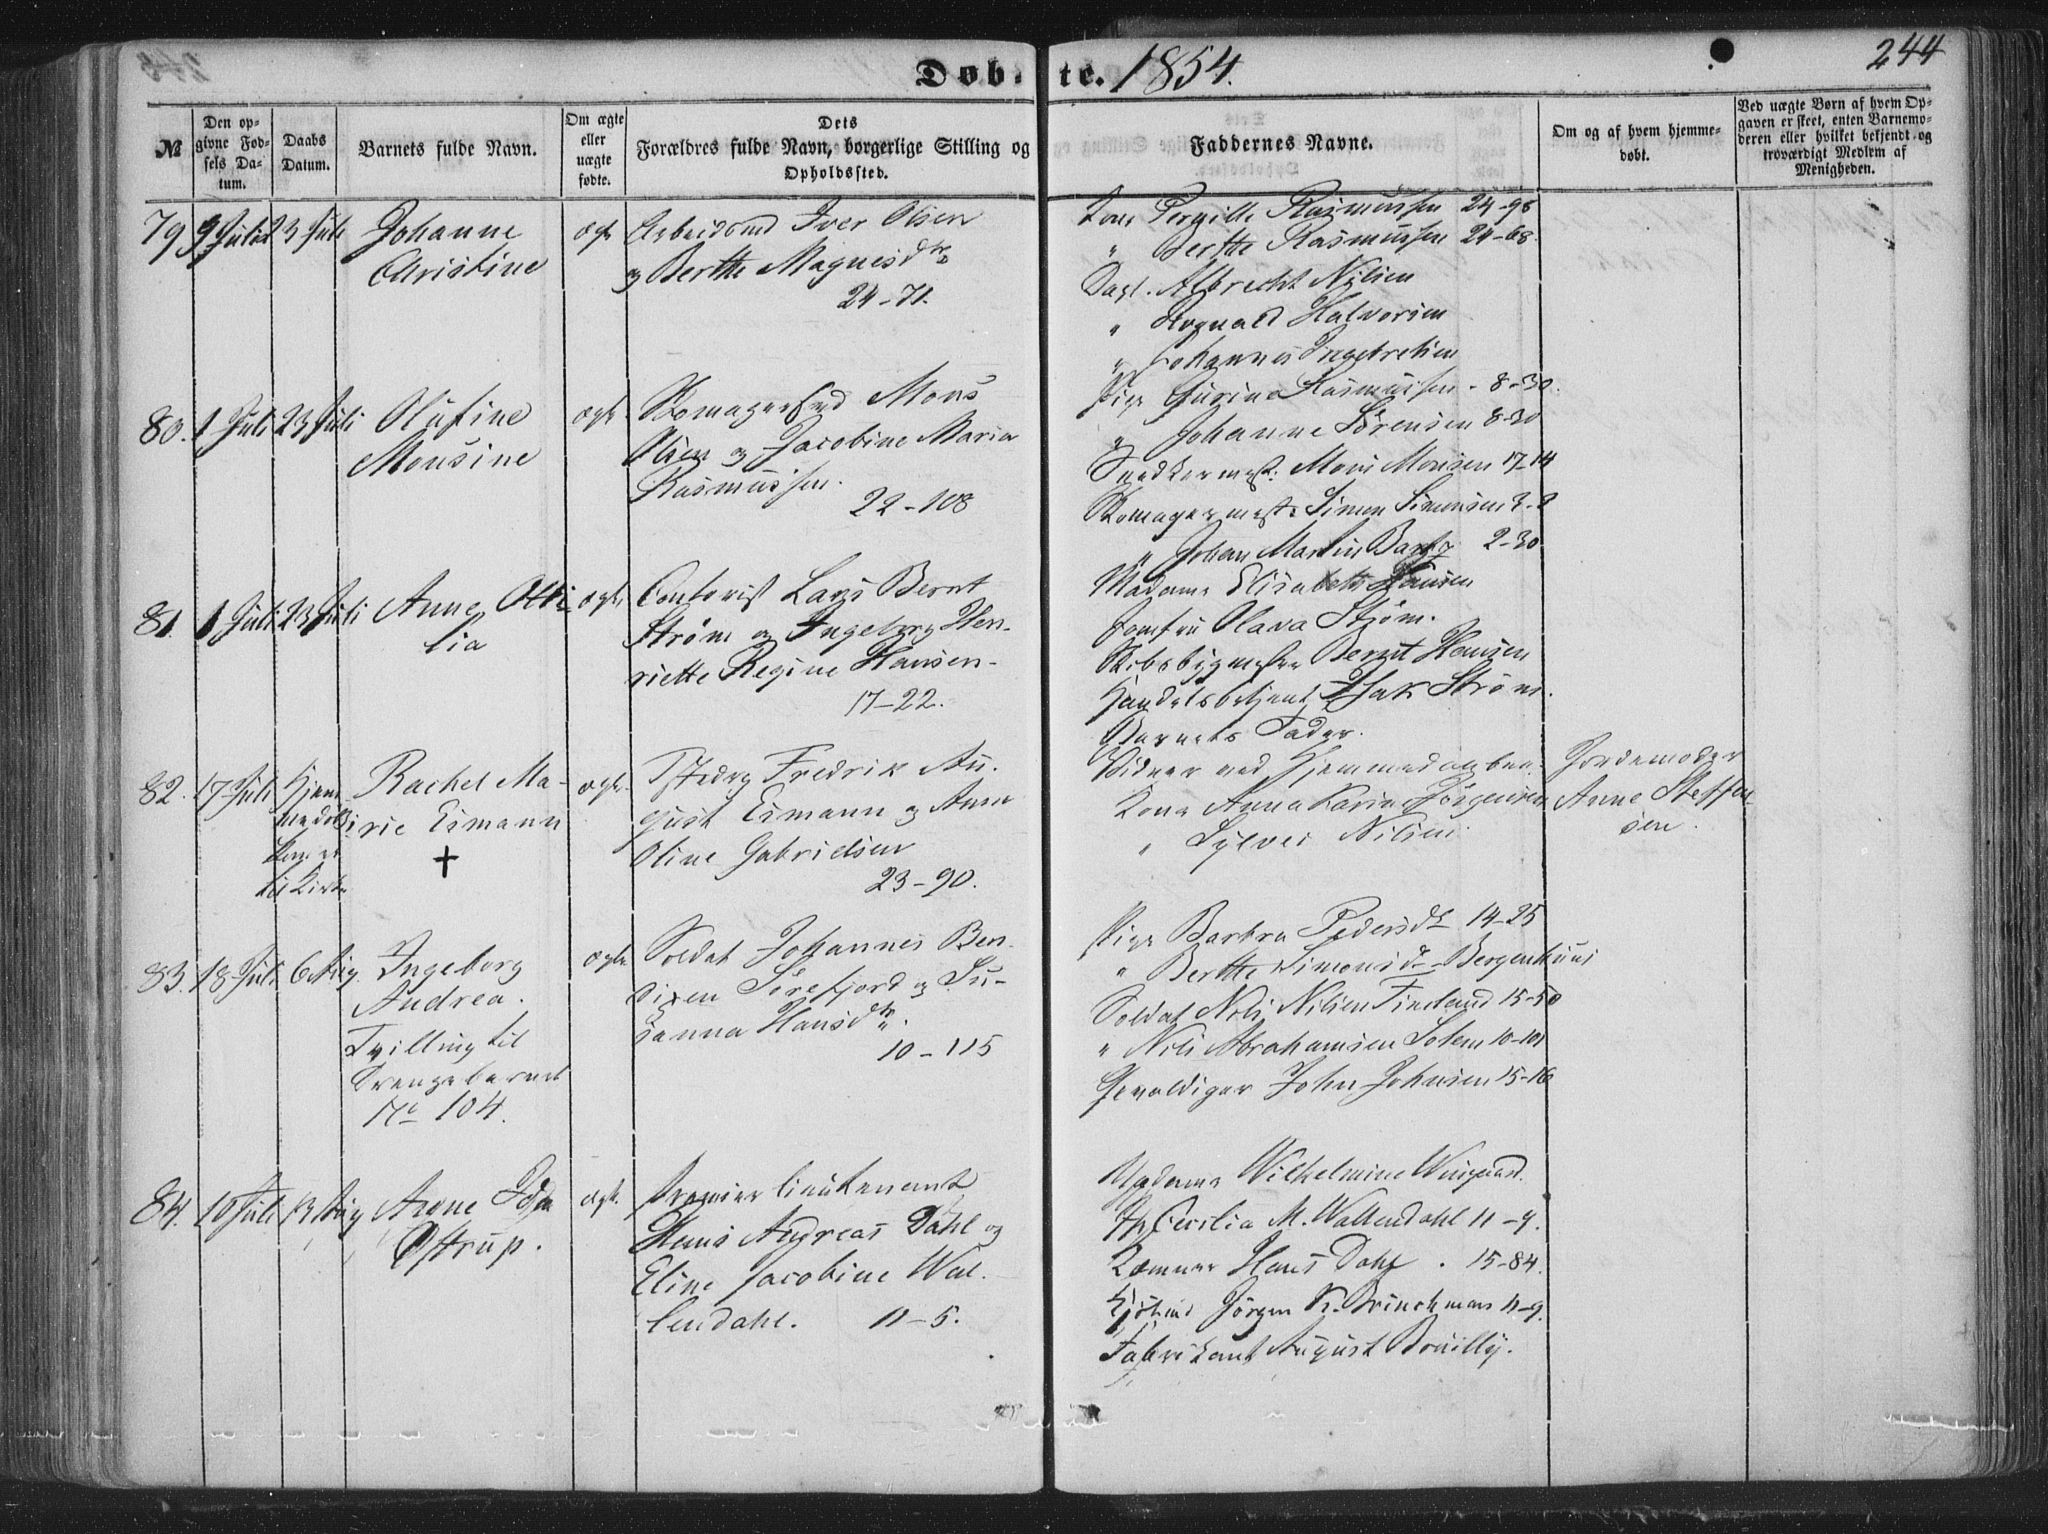 Døbte. 1854.
244
№
Den opgivne Fødsels Datum.
Daabs Datum.
Barnets fulde Navn.
Om ægte eller uægte fødte.
Dets Forældres fulde Navn, borgerlige Stilling og Opholdssted.
Faddernes Navne.
Om og af hvem hjemmedøbt.
Ved uægte Børn af hvem Opgaven er skeet, enten Barnemoderen eller hvilket bekjendt og troværdigt Medlem af Menigheden.
79 9 Juli 23 Juli
Johanne
Christine
ægte
Arbeidsmd Iver Olsen
og Berthe Magnisdtr
24-71.
Kone Pernille Rasmussen 24-98
" Berthe Rasmussen 24-68.
Dagl. Albrecht Nilsen
" Halvorsen
" Johannes Ingebretsen
80. 1 Juli 23 Juli
Olufine
Monsine
ægte
Skomagersvd Mons
Olsen og Jacobine Maria
Rasmussen.
22-108
Pige Gurine Rasmussen - 8-30.
" Johanne Sørensen 8-30
Snedkermest: Mons Monsen 17-14
Skomagermest: Simon Simonsen 2-2
" Johan Martin 2-30
81. 1 Juli 23 Juli
Anne Otti
lia
ægte
Contorist Lars Bernt
Strøm og Ingeborg Hen-
riette Regine Hansen-
17-22.
Madame Elisabeth Hansen
Jomfru Olava Strøm.
Skibsbygmester Bernt Hansen
Handelsbetjent Isak Strøm.
Barnets Fader.
82. 17 Juli
Hjem
medøbt
til Kirke
Rachel Ma-
rie Eimann
+
ægte.
Fredrik Au.
gust Eimann og Anne
Oline Gabrielsen
23-90.
Vidner ved Hjemmedaaben:
Kone Anna Karina Jørgensen
" Sylvei Nilsen.
Jordemoder
Anne Steffen-
sen.
83. 18 Juli 6 Aug
Ingeborg
Andrea.
Tvilling til
Drengebarnet
No 104.
ægte
Soldat Johannes Ben-
dixen Sørefjord og Su-
sanna Hansdtr.
10-115
Pige Barbra Pedersdtr 14-25
" Berthe Simonsd- Bergenhuus
Soldat Nils Nilsen 15-50
" Nils Abrahamsen Solem 10-101
Gevaldiger John Johnsen 15-16
84. 10 Juli 13 Aug
Ida
Ostrup.
ægte.
Premierlieutenant
Hans Andreas Dahl og
Eline Jacobine Wal-
lendahl. 11-5.
Madame Wilhelmine
Cecilia M. Wallendahl 11-9.
Kæmner Hans Dahl . 15-84.
Kjøbmd Jørgen K. Brinchman 11-9.
Fabrikant August Bruilly.